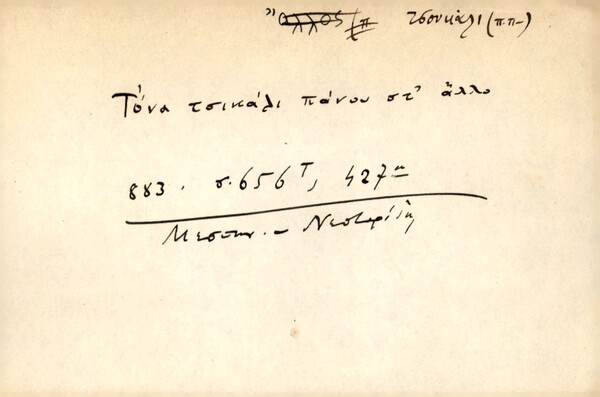 Ἄλλος (π τσουκάλι (ππ–)
Τόνα τσικάλι πάνου στ' ἄλλο
883. σ. 656 Τ, 427 α
Μεσσην. –